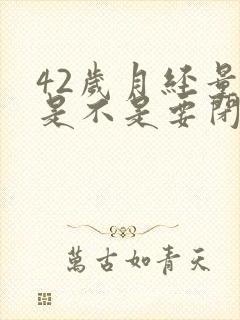 42歲月經量
是不是要閉
萬古如青天